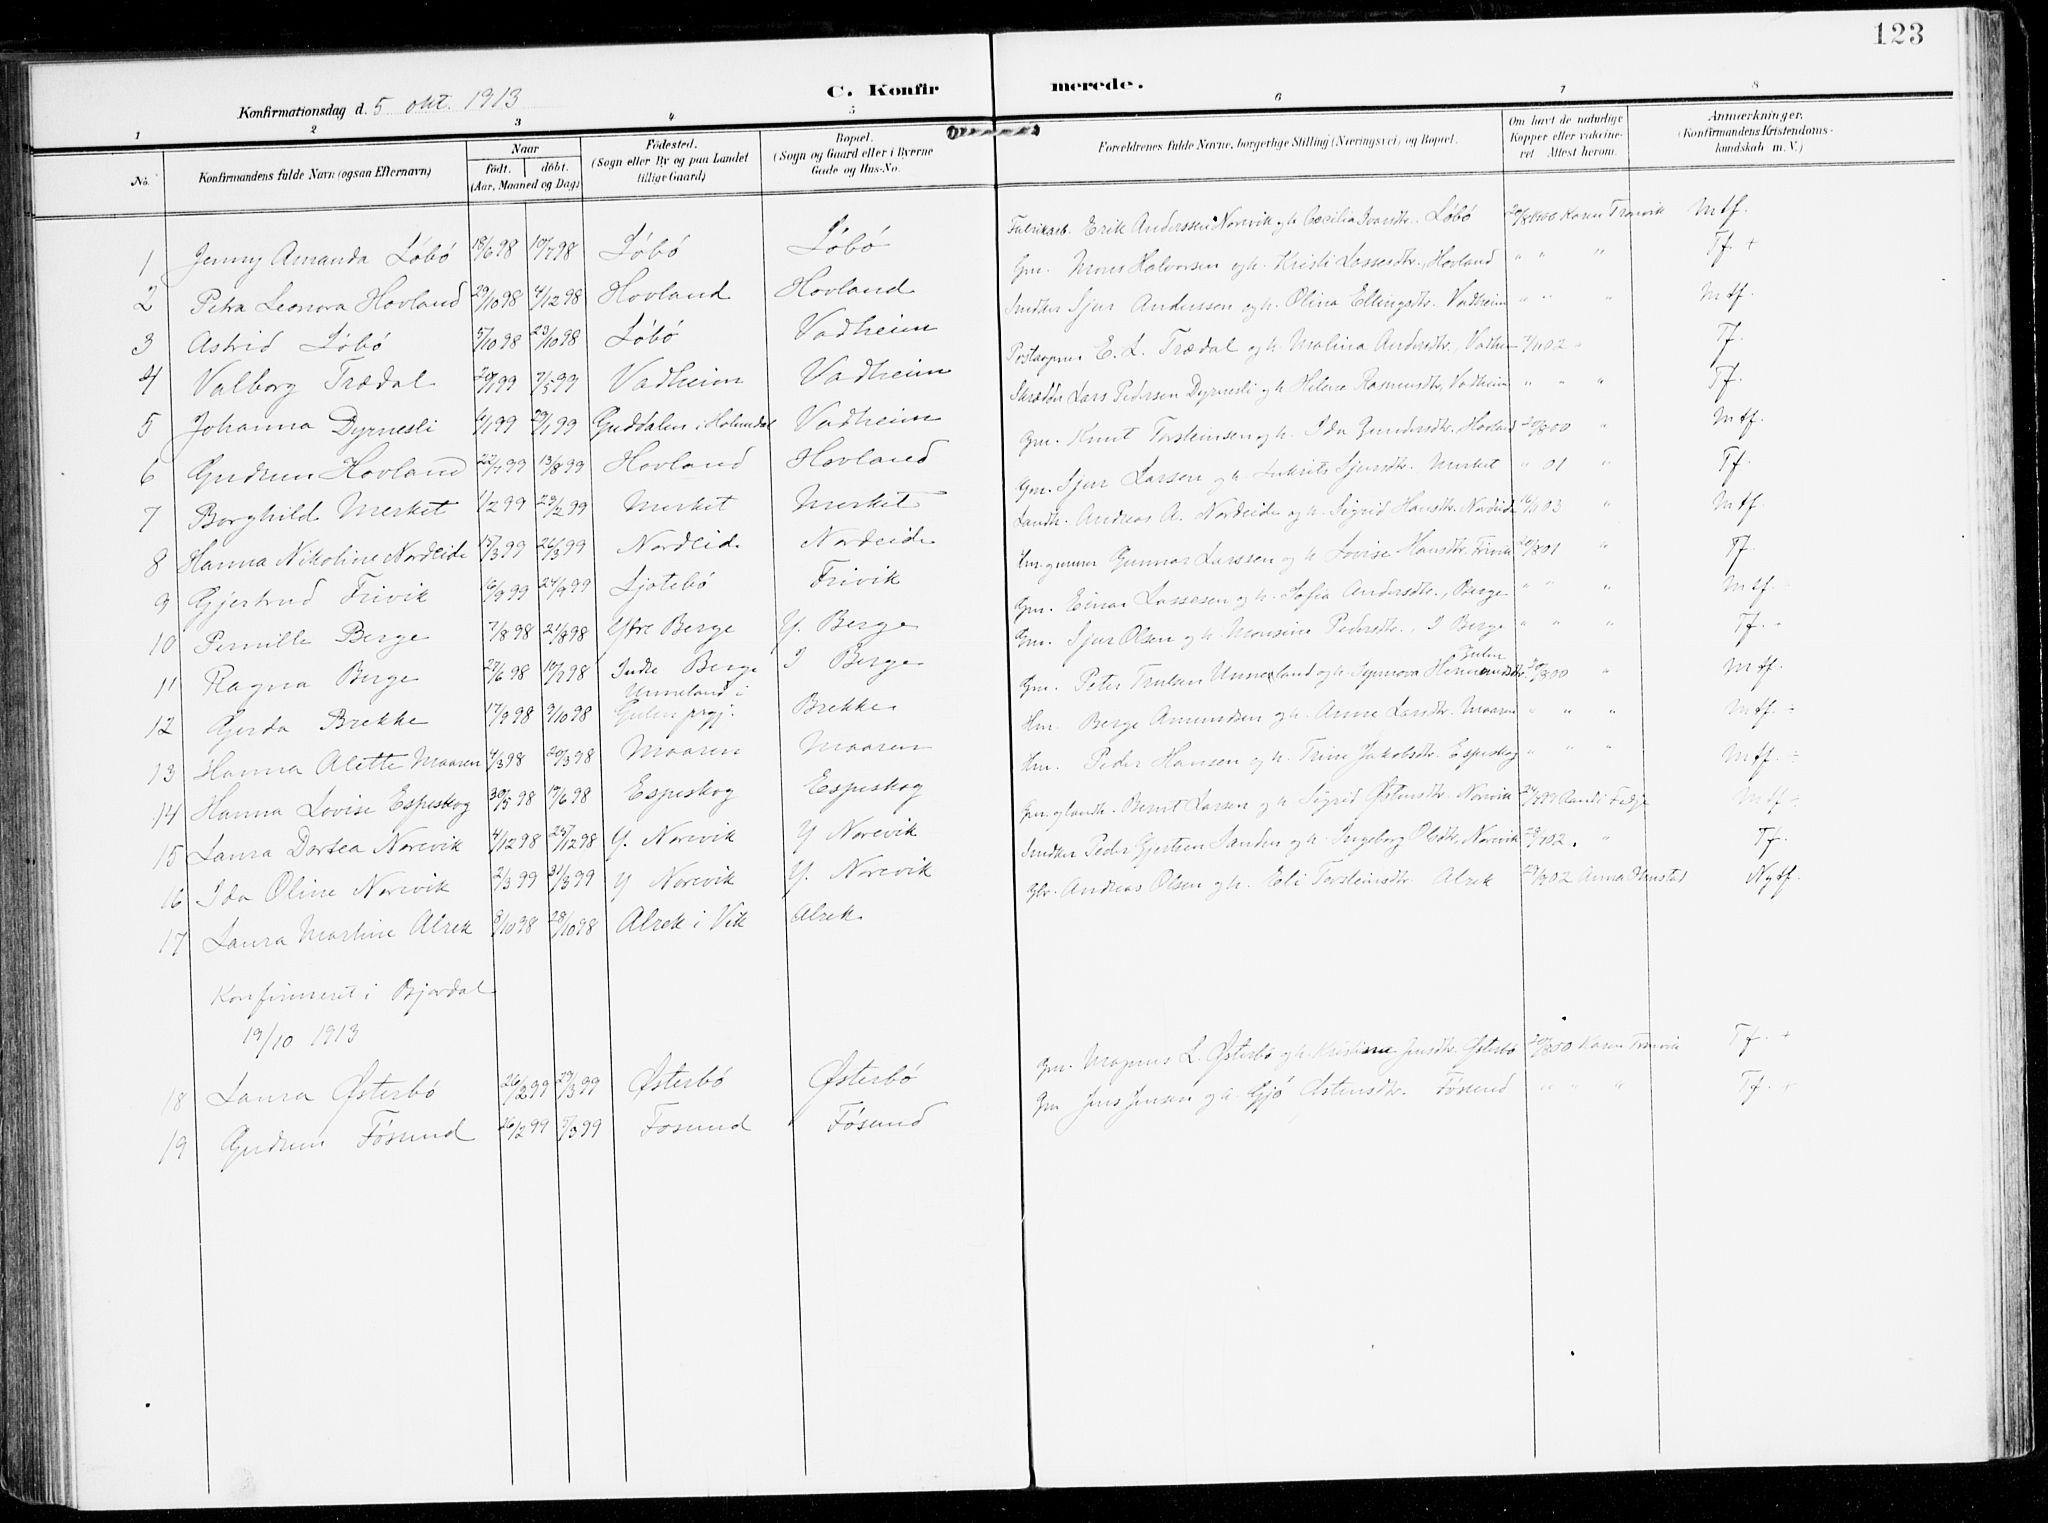 123
C. Konfirmerede.
Konfirmationsdag d. 5 okt. 1913
1 2 3 4 5 6 7 8
No. Konfirmandens fulde Navn (ogsaa Efternavn) Naar født. døbt. (Aar, Maaned og Dag) Fødested. (Sogn eller By og paa Landet tillige Gaard) Bopæl. (Sogn og Gaard eller i Byerne Gade og Hus-No. Forældrenes fulde Navne, borgerlige Stilling (Næringsvei) og Bopæl. Om havt de naturlige Kopper eller vakcineret Attest herom. Anmærkninger. (Konfirmandens Kristendomskundskab m. V.)
1 Jenny Amanda Løbø 18/6 98 10/7 98 Løbø Løbø Fabrikarb. Erik Anderssen Norevik og h. Cecilia Ivarsdtr. Løbø 20/8 1900 Karen Tronvik Mtf.
2 Petra Leonora Hovland 29/10 98 4/12 98 Hovland Hovland Gm. Mons Halvorsen og h. Kristi Lassesdtr. Hovland " " " Tf. +
3 Astrid Løbø 5/10 98 23/10 98 Løbø Vadheim Snedker Sjur Anderssen og h. Olina Ellingsdtr. Vadheim " " " Mtf.
4 Valborg Trædal 20/1 99 7/5 99 Vadheim Vadheim Postaapner E. L. Trædal og h. Malina Andersdtr. Vadheim 7/11 02 " Tf.
5 Johanna Dyrnesli 4/1 99 29/1 99 Guddalen i Holmedal Vadheim Skrædder Lars Pedersen Dyrnesli og h. Helene Rasmusdtr. Vadheim " " " Tf.
6 Gudrun Hovland 22/7 99 13/8 99 Hovland Hovland Gm. Knut Torsteinsen og h. Ida Gundersdtr. Hovland 20/8 00 " Mtf.
7 Borghild Merket 1/2 99 29/2 99 Merket Merket Gm. Sjur Larsen og h. Sjursdtr. Merket " 01 " Tf.
8 Hanna Nikoline Nordeide 15/3 99 26/3 99 Nordeide Nordeide Landh. Andreas A. Nordeide og h. Sigrid Hansdtr. Nordeide 16/11 03 " Mtf.
9 Gjertrud Frivik 16/9 99 24/9 99 Ljotebø Frivik Gunnar Larssen og h. Lovise Hansdtr. Frivik 20/8 01 " Tf.
10 Pernille Berge 7/8 98 21/8 98 Ytre Berge Y. Berge Gm. Einar Lassesen og h. Sofia Andersdtr., Berge " " " Mtf.
11 Ragna Berge 27/6 98 10/7 98 Indre Berge I Berge Gm. Sjur Olsen og h. Monsine Pedersdtr., I Berge " " " Tf.
12 Gerda Brekke 17/9 98 9/10 98 Unneland i Gulen prgj. Brekke Gm. Peter Trulsen Unneland og h. Synnova Hermundsdtr. Gulen 20/8 00 " Mtf.
13 Hanna Alette Maaren 4/3 98 20/3 98 Maaren Maaren Hm. Berge Amundsen og h. Anne Larsdtr. Maaren " " " Mtf. ÷
14 Hanna Lovise Espeskog 30/5 98 19/6 98 Espeskog Espeskog Hm. Peder Hansen og h. Trine Jakobsdtr. Espeskog " " " Mtf. ÷
15 Laura Dortea Norevik 4/12 98 25/12 98 Y. Norevik Y Norevik Gm. og landh. Bernt Larsen og h. Sigrid Østensdtr. Norevik 24/7 99 Randi Fedje Mtf ÷
16 Ida Oline Norevik 2/3 99 31/3 99 Y Norevik Y. Norevik Snedker Peder Gjertsen Sanden og h. Ingeborg Olsdtr. Norevik 29/7 02 " Tf.
17 Laura Martine Alrek 8/10 98 28/10 98 Alrek i Vik Alrek Glr. Andreas Olsen og h. Eli Torsteinsdtr. Alrek 29/9 02 Anna Ølmstad Ngtf.
Konfirmeret i Bjordal
19/10 1913
18 Laura Østerbø 26/2 99 29/3 99 Østerbø Østerbø Gm. Magnus L. Østerbø og h. Kristine Jensdtr. Østerbø 20/8 00 Karen Tronvik Tf. +
19 Gudrun Føsund 16/2 99 5/3 99 Føsund Føsund Gm Jens Jensen og h. Gjø Østensdtr. Føsund " " " Tf. +